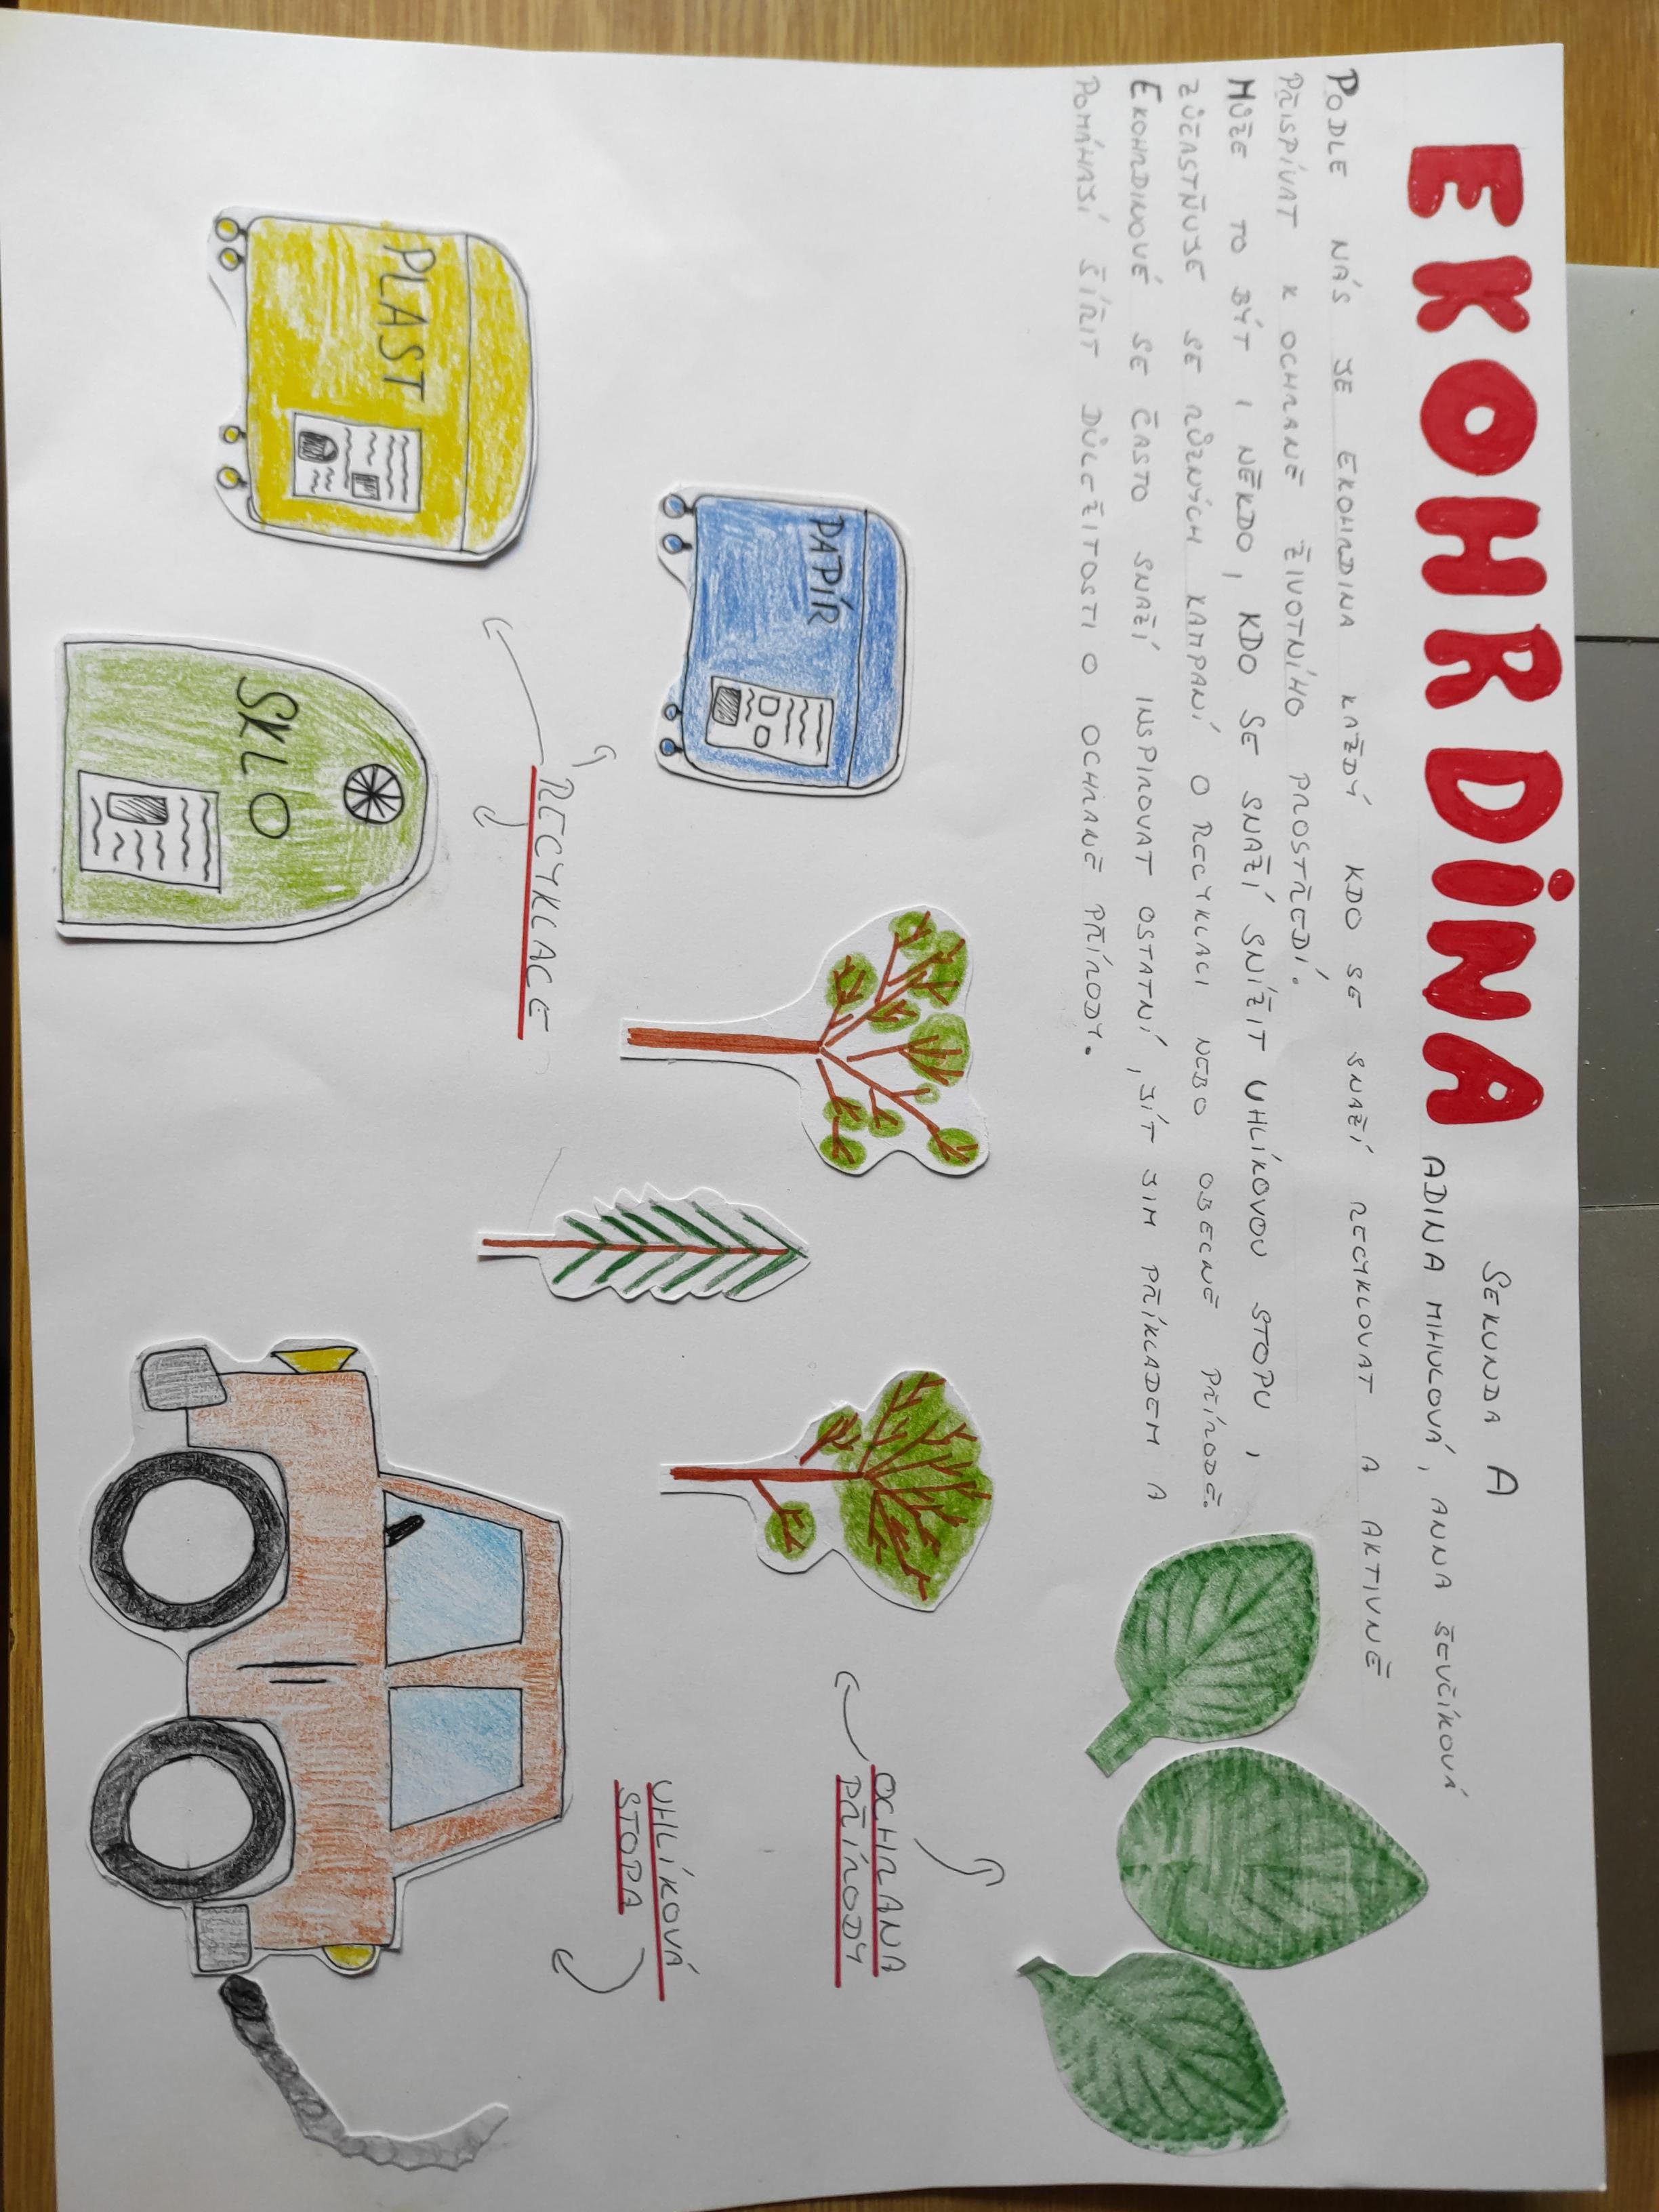 EKOHRDINA
SEKUNDA A
ADINA MIHULOVÁ, ANNA ŠEVČÍKOVÁ
PODLE NÁS JE EKOHRDINA KAŽDÝ KDO SE SNAŽÍ RECYKLOVAT A AKTIVNĚ
PŘISPÍVAT K OCHRANĚ ŽIVOTNÍHO PROSTŘEDÍ.
MŮŽE TO BÝT I NĚKDO, KDO SE SNAŽÍ SNÍŽIT UHLÍKOVOU STOPU,
ZÚČASTŇUJE SE RŮZNÝCH KAMPANÍ O RECYKLACI NEBO OBECNĚ PŘÍRODĚ.
EKOHRDINOVÉ SE ČASTO SNAŽÍ INSPIROVAT OSTATNÍ, JÍT JIM PŘÍKLADEM A
POMÁHAJÍ ŠÍŘIT DŮLEŽITOSTI O OCHRANĚ PŘÍRODY.
OCHRANA
PŘÍRODY
PAPÍR
UHLÍKOVÁ
STOPA
RECYKLACE
PLAST
SKLO